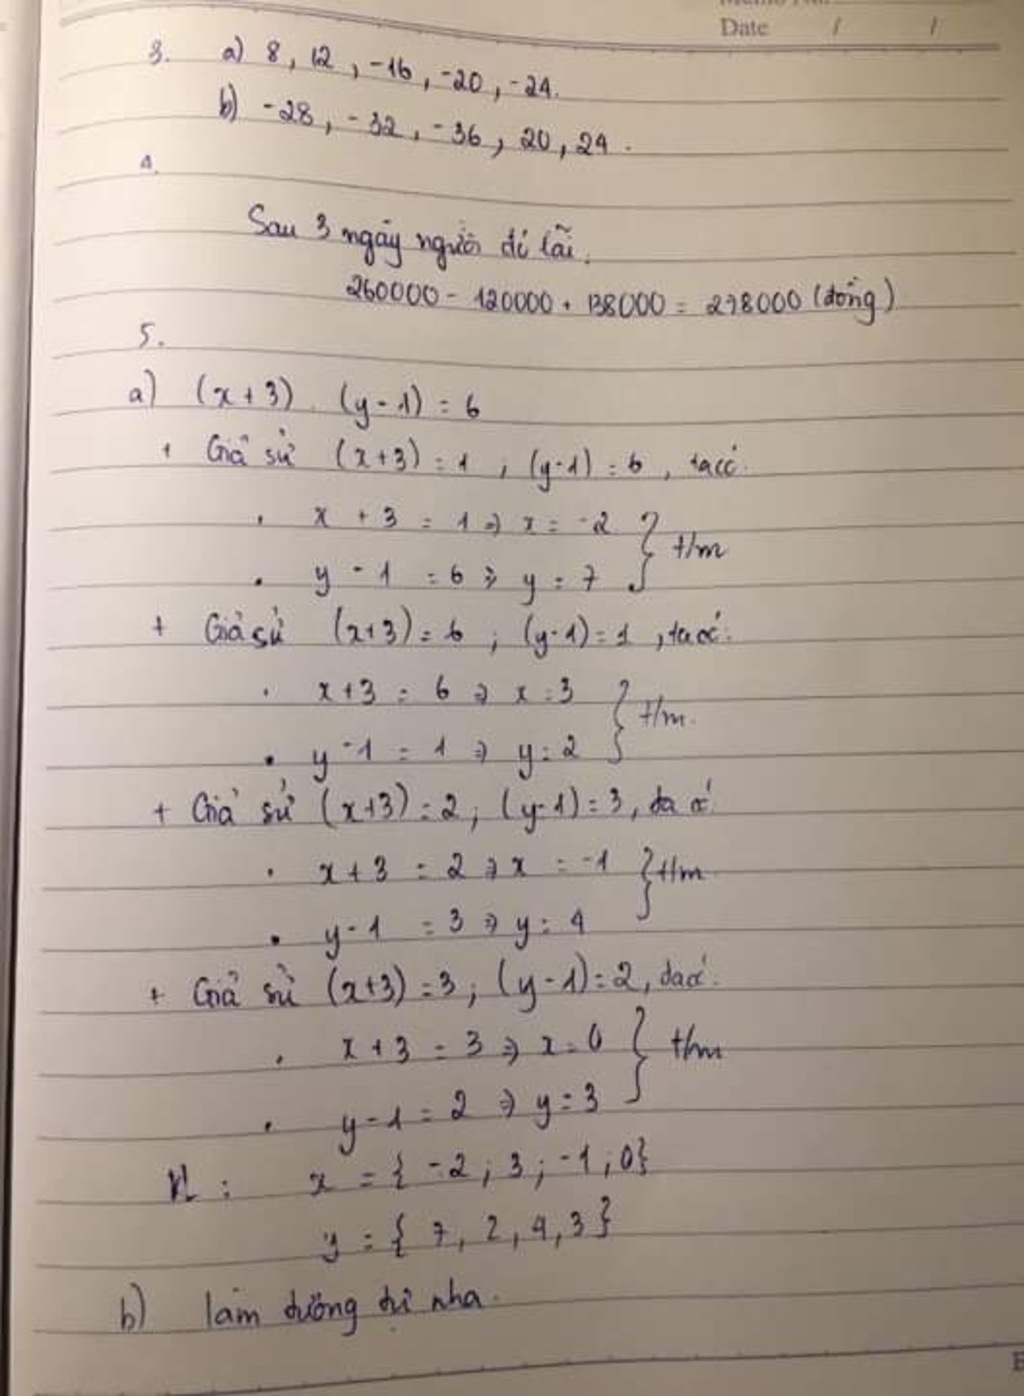 Date / /
3. a) 8, 12, -16, -20, -24.
b) -28, -32, -36, 20, 24.
4.
Sau 3 ngày người đó lãi.
260000 - 120000 + 138000 = 278000 (đồng)
5.
a) (x+3) . (y-1) = 6
+ Giả sử (x+3) = 1 ; (y-1) = 6, ta có:
. x + 3 = 1 => x = -2 } t/m
. y - 1 = 6 => y = 7
+ Giả sử (x+3) = 6 ; (y-1) = 1, ta có:
. x+3 = 6 => x = 3 } t/m.
. y - 1 = 1 => y = 2
+ Giả sử (x+3) = 2 ; (y-1) = 3, ta có
. x + 3 = 2 => x = -1 } t/m
. y - 1 = 3 => y = 4
+ Giả sử (x+3) = 3 ; (y-1) = 2, ta có:
. x + 3 = 3 => x = 0 } t/m
. y - 1 = 2 => y = 3
Kl : x = { -2 ; 3 ; -1 ; 0}
y = { 7, 2, 4, 3 }
b) làm tương tự nha.